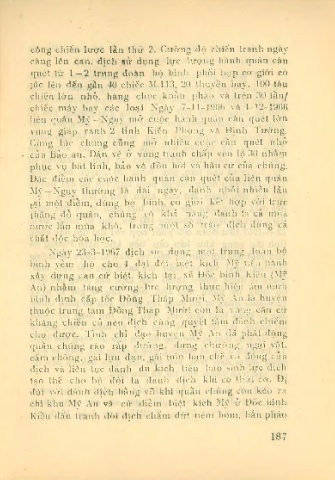 công chiến lược lần thứ 2. Cường độ chiến tranh ngày
càng lên cao, địch sử dụng lực lượng hành quân càn
quét từ 1-2 trung đoàn bộ binh phối hợp cơ giới có
lúc lên đến gần 40 chiếc M.113, 20 thuyền bay, 100 tàu
chiến lớn nhỏ, hàng chục khẩu pháo và trên 30 lần/
chiếc máy bay các loại Ngày 7-11-1966 và 1-12-1966
liên quân Mỹ-Ngụy mở cuộc hành quân càn quét lớn
vùng giáp ranh 2 tỉnh Kiến Phong và Định Tường.
Cùng lúc chúng cũng mở nhiều cuộc càn quét nhỏ
của Bảo an, Dân vệ ở vùng tranh chấp ven lộ 30 nhằm
phục vụ bát bình, bảo vệ đồn bót và hậu cứ của chúng.
Đặc điểm các cuộc hành quân càn quét của liên quân
Mỹ-Ngụy thường là dài ngày, đánh nhồi nhiều lần
tại một điểm, dùng bộ binh, cơ giới kết hợp với trực
thăng đổ quân, chúng có khả năng đánh ta cả mùa
nước lẫn mùa khô, trong một số trận địch dùng cả
chất độc hóa học.
Ngày 23-3-1967 địch sử dụng một trung đoàn bộ
binh yểm hộ cho 1 đại đội biệt kích Mỹ tiến hành
xây dựng căn cứ biệt kích tại xã Đốc Binh Kiều (Mỹ
An) nhằm tăng cường lực lượng thực hiện âm mưu
bình định cấp tốc Đồng Tháp Mười. Mỹ An là huyện
thuộc trung tâm Đồng Tháp Mười còn là vùng căn cứ
kháng chiến cũ nên địch càng quyết tâm đánh chiếm
cho được. Tỉnh chỉ đạo huyện Mỹ An đã phát động
quần chúng rào rấp đường, dựng chướng ngại vật,
cắm chông, gài lựu đạn, gài mìn hạn chế cơ động của
địch và liên tục đánh du kích tiêu hao sinh lực địch
tạo thế cho bộ đội ta đánh địch khi có thời cơ. Đi
đôi với đánh địch bằng vũ khí quần chúng còn kéo ra
chi khu Mỹ An và cứ điểm biệt kích Mỹ ở Đốc Binh
Kiều đấu tranh đòi địch chấm dứt ném bom, bắn pháo
187